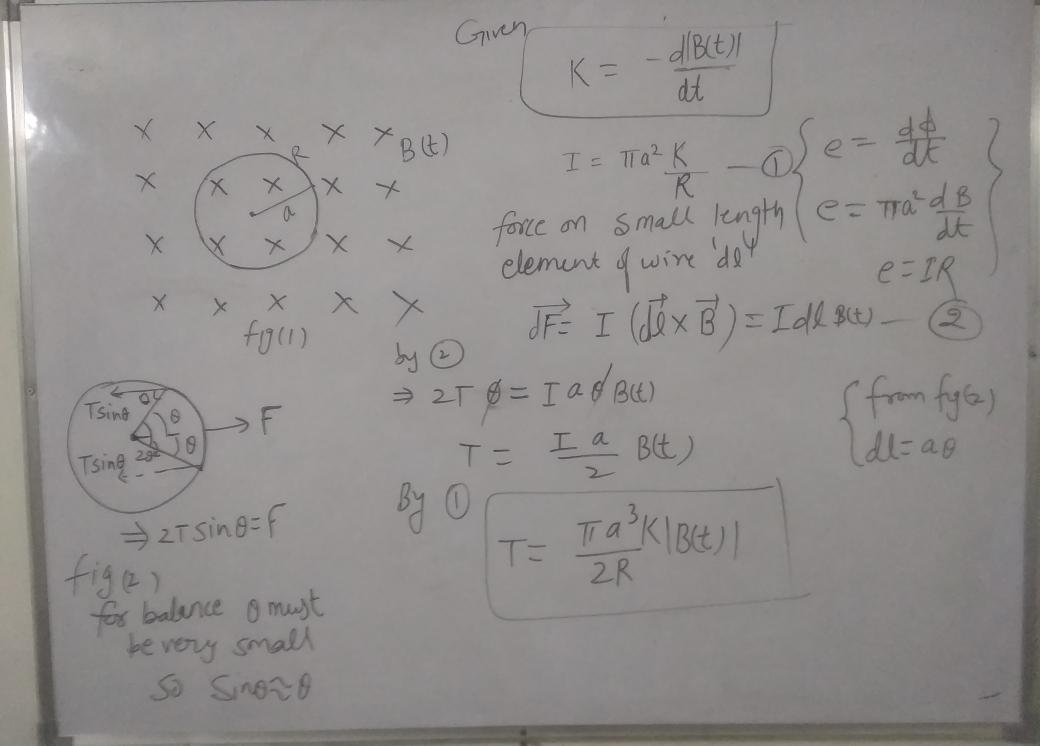 Given
K = - d|B(t)| / dt
× × × × × B(t)
R
× × × × ×
a
× × × × ×
× × × × ×
fig(1)
I = πa² K/R — ①
{ e = dφ/dt
e = πa² dB/dt
e = IR }
force on small length
element of wire 'dl'
dF⃗ = I (dl⃗ × B⃗) = I dl B(t) — ②
by ②
⇒ 2T θ = I a θ B(t)
{ from fig(2)
dl = aθ
T = I a / 2 B(t)
By ①
T = πa³K|B(t)| / 2R
T sinθ
θ
θ
T
θ
F
T sinθ
⇒ 2T sinθ = F
fig(2)
for balance θ must
be very small
so sinθ ≈ θ